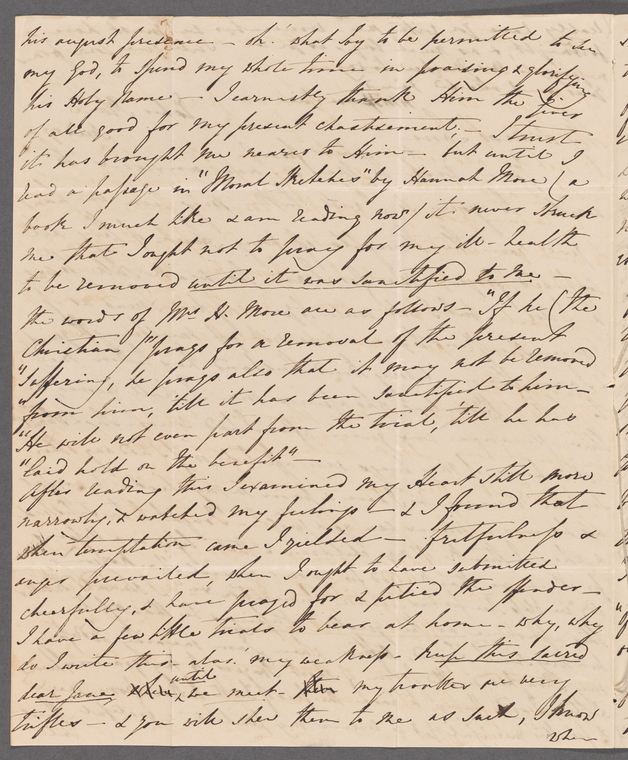 his august presence — oh! what joy to be permitted to see
my God, to spend my whole time in praising & glorifying
his Holy Name — I earnestly thank Him the Giver
of all good for my present chastisement, — I trust
it has brought me nearer to Him — but until I
read a passage in "Moral Sketches" by Hannah More (a
book I much like & am reading now) it never struck
me that I ought not to pray for my ill-health
to be removed until it was sanctified to me —
the words of Mrs H. More are as follows — "If he (the
Christian) "prays for a removal of the present
"suffering, he prays also that it may not be removed
"from him, till it has been sanctified to him —
"He will not even part from the trial, till he has
"laid hold on the benefit" —
After reading this I examined my Heart still more
narrowly, & watched my feelings — & I found that
when temptation came I yielded — fretfulness &
anger prevailed, when I ought to have submitted
cheerfully, & have pray'd for & pitied the offender —
I have a few little trials to bear at home — why, why
do I write this — alas! my weakness — keep this sacred
dear Jane, until we meet — my troubles are very
trifles — & you will shew them to me as such, I know
when